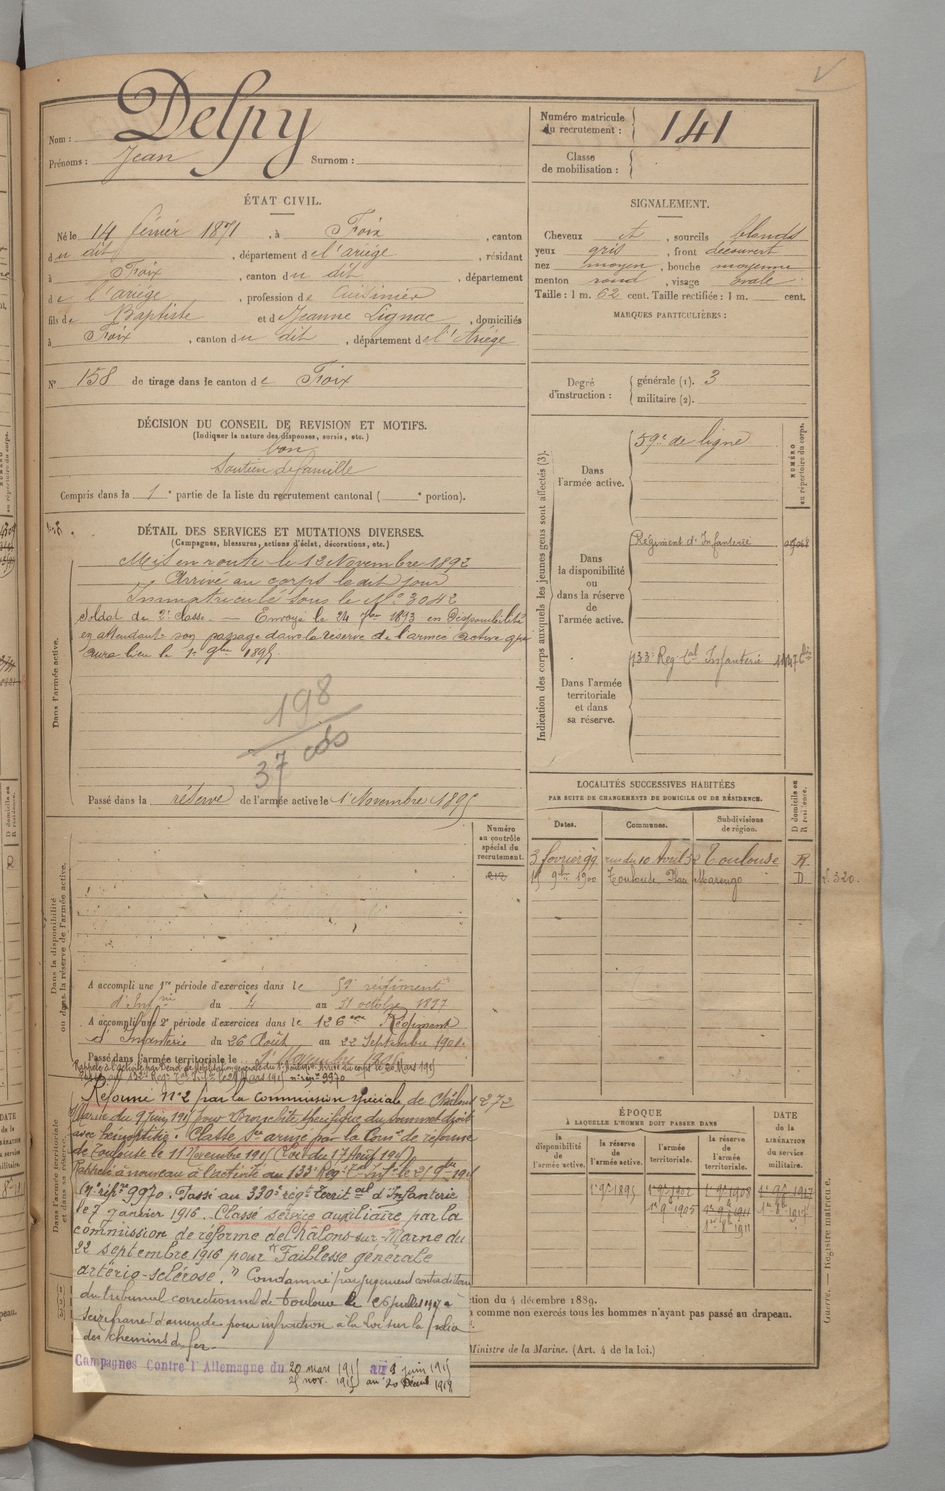 Nom : Delpy
Prénoms : Jean Surnom :
Numéro matricule du recrutement : 141
Classe de mobilisation :
ÉTAT CIVIL.
Né le 14 février 1871, à Foix, canton
du dit, département de l'ariége, résidant
à Foix, canton du dit, département
de l'ariége, profession de Cuisinier
fils de Baptiste et de Jeanne Lignac, domiciliés
à Foix, canton du dit, département de l'Ariége
N° 158 de tirage dans le canton de Foix
SIGNALEMENT.
Cheveux et, sourcils blonds
yeux gris, front découvert
nez moyen, bouche moyenne
menton rond, visage ovale
Taille : 1 m. 62 cent. Taille rectifiée : 1 m. cent.
MARQUES PARTICULIÈRES :
Degré d'instruction : générale (1). 3
militaire (2).
DÉCISION DU CONSEIL DE REVISION ET MOTIFS.
(Indiquer la nature des dispenses, sursis, etc.)
bon
Soutien de famille
Compris dans la 1e partie de la liste du recrutement cantonal ( e portion).
DÉTAIL DES SERVICES ET MUTATIONS DIVERSES.
(Campagnes, blessures, actions d'éclat, décorations, etc.)
Dans l'armée active.
Mis en route le 12 Novembre 1892
Arrivé au corps le dit jour
Immatriculé sous le N° 3042
Soldat de 2e classe. — Envoyé le 24 7bre 1893 en disponibilité
en attendant son passage dans la réserve de l'armée active qui
aura lieu le 1er 9bre 1895.
198
37 cds
Passé dans la réserve de l'armée active le 1er Novembre 1895
Indication des corps auxquels les jeunes gens sont affectés (3).
NUMÉRO au répertoire du corps.
Dans l'armée active.
59e de ligne
Dans la disponibilité ou dans la réserve de l'armée active.
Régiment d'Infanterie
Dans l'armée territoriale et dans sa réserve.
133e Reg. tal Infanterie
LOCALITÉS SUCCESSIVES HABITÉES
PAR SUITE DE CHANGEMENTS DE DOMICILE OU DE RÉSIDENCE.
Dates. Communes. Subdivisions de région. D domicile ou R résidence.
3 février 99 rue du 10 Avril 32 Toulouse R
15 9bre 1900 Toulouse Rue Marengo D
320.
Numéro au contrôle spécial du recrutement.
Dans la disponibilité ou dans la réserve de l'armée active.
A accompli une 1re période d'exercices dans le 59e régiment
d'Infrie du 4 au 31 octobre 1897
A accompli une 2e période d'exercices dans le 126eme Régiment
d'Infanterie du 26 Août au 22 Septembre 1901.
Passé dans l'armée territoriale le
Dans l'armée territoriale et dans sa réserve.
Réforme N°2 par la Commission spéciale de Châlons 272
Marne du 9 Juin 1915 pour Bronchite spécifique du sommet droit
avec hémoptisie. Classé Sce armé par la Comon de réforme
de Toulouse le 11 Novembre 1915
Rappelé à nouveau à l'activité au 133e Reg. tal Inf. le 25 9bre 1915
n° rép. 9970. Passé au 330e régt territal d'Infanterie
le 7 janvier 1916. Classé service auxiliaire par la
commission de réforme de Châlons-sur-Marne du
22 septembre 1916 pour "Faiblesse générale
artério-sclérose." Condamné par jugement contradictoire
du tribunal correctionnel de Toulouse le 26 juillet 1917 à
seize francs d'amende pour infraction à la loi sur la police
des chemins de fer.
Campagnes Contre l'Allemagne du 20 mars 1915 au 9 juin 1915
25 nov. 1915 au 20 Décemb 1918
ÉPOQUE
À LAQUELLE L'HOMME DOIT PASSER DANS
la disponibilité de l'armée active. la réserve de l'armée active. l'armée territoriale. la réserve de l'armée territoriale. DATE de la LIBÉRATION du service militaire.
1er 9bre 1895 1er 9bre 1902 1er 9bre 1908 1er 9bre 1917
1er 9bre 1905 1er 9bre 1911 1er 8bre 1917
1er 8bre 1911
ction du 4 décembre 1889.
comme non exercés tous les hommes n'ayant pas passé au drapeau.
Ministre de la Marine. (Art. 4 de la loi.)
Guerre. — Registre matricule.